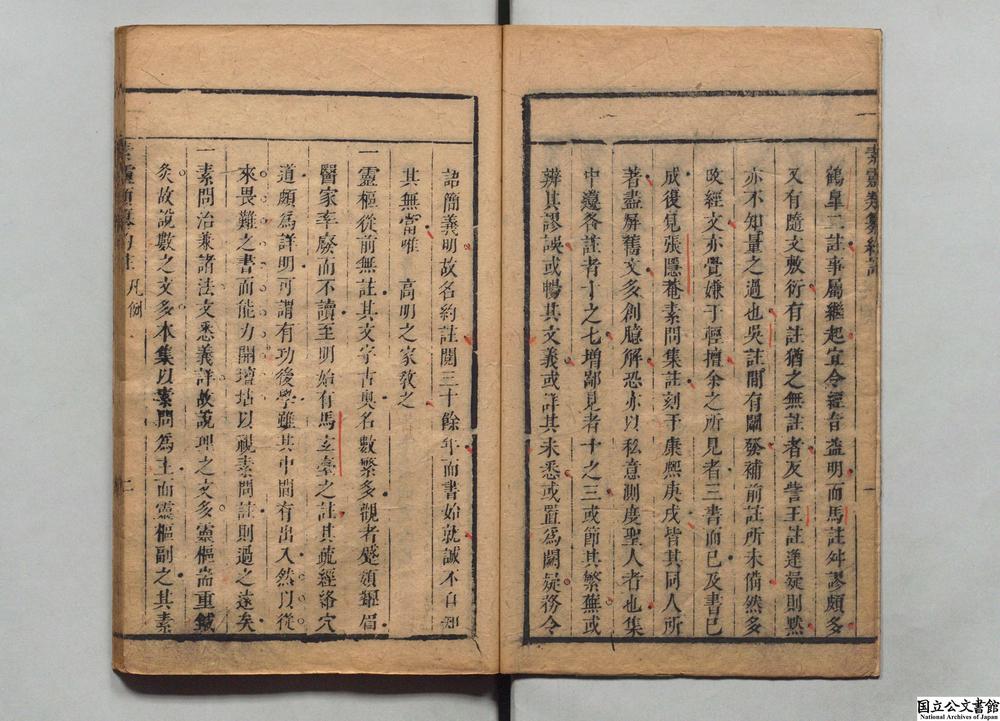 鶴臯二註事屬繼起宜令經旨益明而馬註舛謬頗多
又有隨文敷衍有註猶之無註者反訾王註逢疑則默
亦不知量之過也吳註間有闡發補前註所未備然多
改經文亦覺嫌于輕擅余之所見者三書而已及書已
成後見張隱菴素問集註刻于康熙庚戌皆其同人所
著盡屏舊文多創臆解恐亦以私意測度聖人者也集
中邊各註者十之七增鄙見者十之三或節其繁蕪或
辨其謬誤或暢其文義或詳其未悉或置爲闕疑務令
語簡義明故名約註閱三十餘年而書始就誠不自知
其無當唯 高明之家敎之
一靈樞從前無註其文字古奧名數繁多觀者蹙頞顰眉
醫家率廢而不讀至明始有馬玄臺之註其疏經絡穴
道頗爲詳明可謂有功後學雖其中間有出入然以從
來畏難之書而能力開壇坫以視素問註則過之遠矣
一素問治兼諸法文悉義詳故說理之文多靈樞耑重鍼
灸故說數之文多本集以素問爲主而靈樞副之其素
素靈類纂約註 凡例 二
国立公文書館
National Archives of Japan